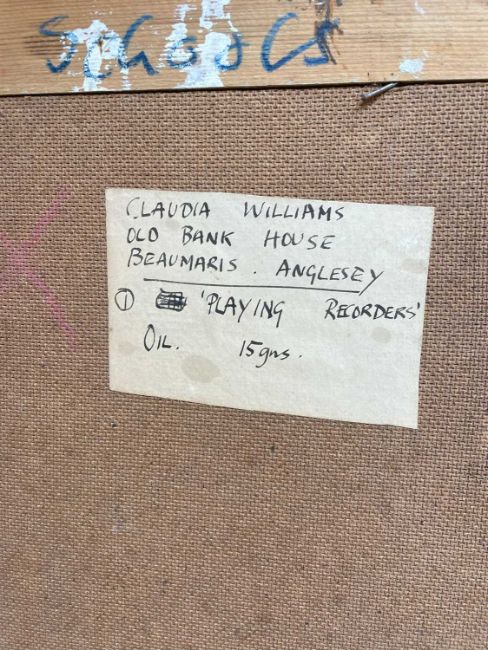 SCHOOLS
CLAUDIA WILLIAMS
OLD BANK HOUSE
BEAUMARIS. ANGLESEY
① 'PLAYING RECORDERS'
OIL. 15gns.